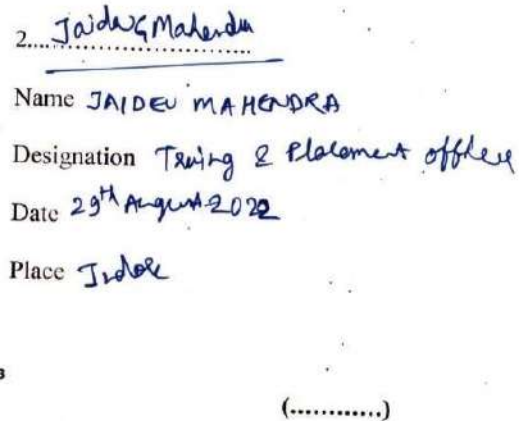 2....Jaidev Mahendra
Name JAIDEV MAHENDRA
Designation Traing & Placement officer
Date 29th August 2022
Place Indore
3
(............)